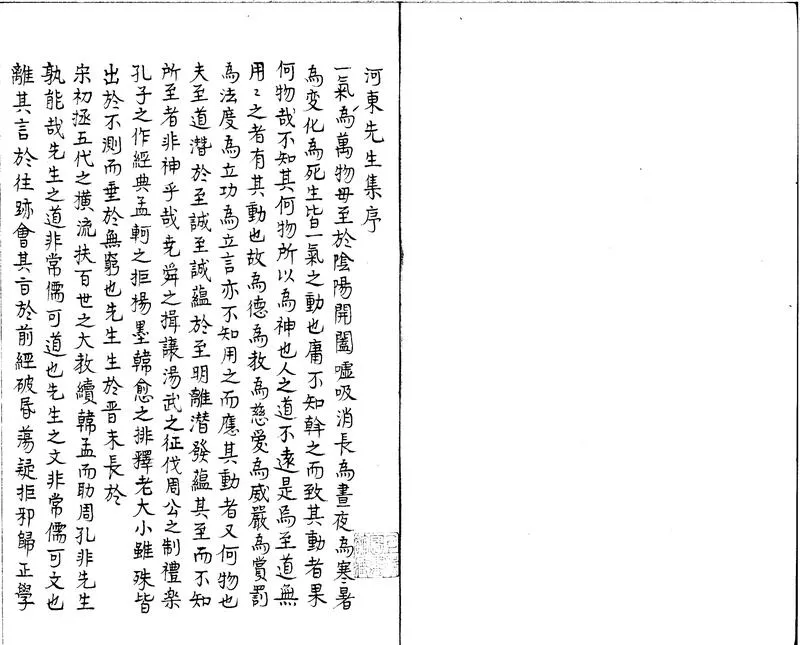 河東先生集序
一氣為萬物母至於陰陽開闔噓吸消長為晝夜為寒暑
為變化為死生皆一氣之動也庸不知幹之而致其動者果
何物哉不知其何物所以為神也人之道不遠是焉至道無
用〻之者有其動也故為德為教為慈愛為威嚴為賞罰
為法度為立功為立言亦不知用之而應其動者又何物也
夫至道潛於至誠至誠蘊於至明離潛發蘊其至而不知
所至者非神乎哉堯舜之揖讓湯武之征伐周公之制禮樂
孔子之作經典孟軻之拒楊墨韓愈之排釋老大小雖殊皆
出於不測而垂於無窮也先生生於晉末長於
宋初拯五代之橫流扶百世之大教續韓孟而助周孔非先生
孰能哉先生之道非常儒可道也先生之文非常儒可文也
離其言於往跡會其旨於前經破昏蕩疑拒邪歸正學